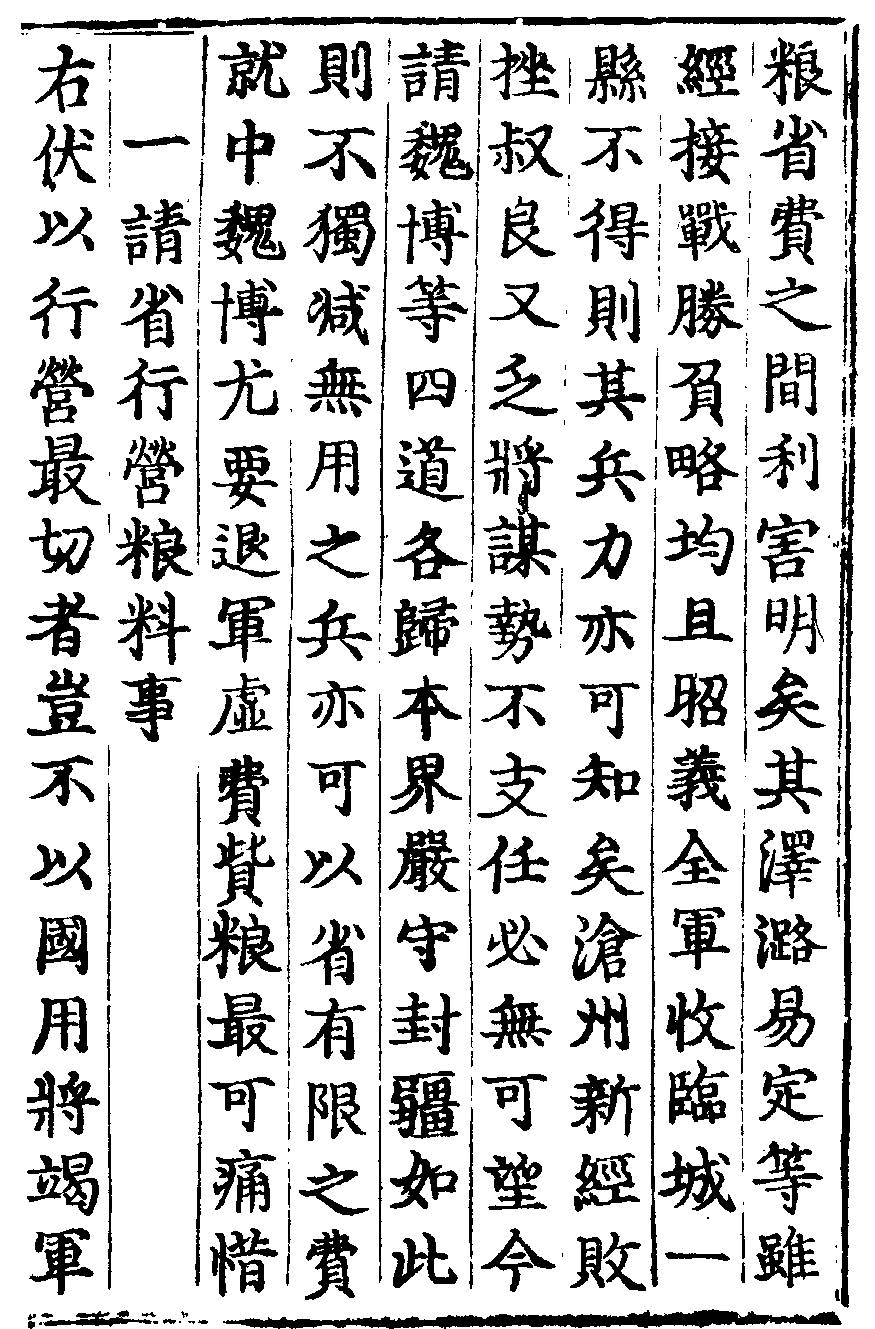 粮省費之間利害明矣其澤潞易定等雖
經接戰勝負略均且昭義全軍收臨城一
縣不得則其兵力亦可知矣滄州新經敗
挫叔良又乏將謀勢不支任必無可望今
請魏博等四道各歸本界嚴守封疆如此
則不獨减無用之兵亦可以省有限之費
就中魏博尤要退軍虛費貲粮最可痛惜
一請省行營粮料事
右伏以行營最切者豈不以國用將竭軍